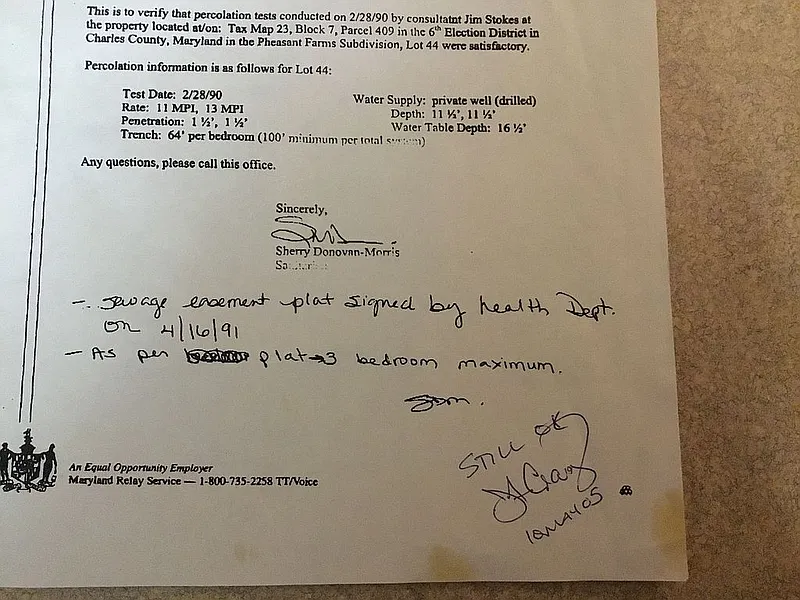 This is to verify that percolation tests conducted on 2/28/90 by consultatnt Jim Stokes at
the property located at/on: Tax Map 23, Block 7, Parcel 409 in the 6th Election District in
Charles County, Maryland in the Pheasant Farms Subdivision, Lot 44 were satisfactory.
Percolation information is as follows for Lot 44:
Test Date: 2/28/90
Rate: 11 MPI, 13 MPI
Penetration: 1 ½', 1 ½'
Trench: 64' per bedroom (100' minimum per total system)
Water Supply: private well (drilled)
Depth: 11 ½', 11 ½'
Water Table Depth: 16 ½'
Any questions, please call this office.
Sincerely,
Sherry Donovan-Morris
- sewage easement plat signed by health Dept.
on 4/16/91
- As per plat → 3 bedroom maximum.
SDM.
STILL OK
10MAY05
An Equal Opportunity Employer
Maryland Relay Service — 1-800-735-2258 TT/Voice